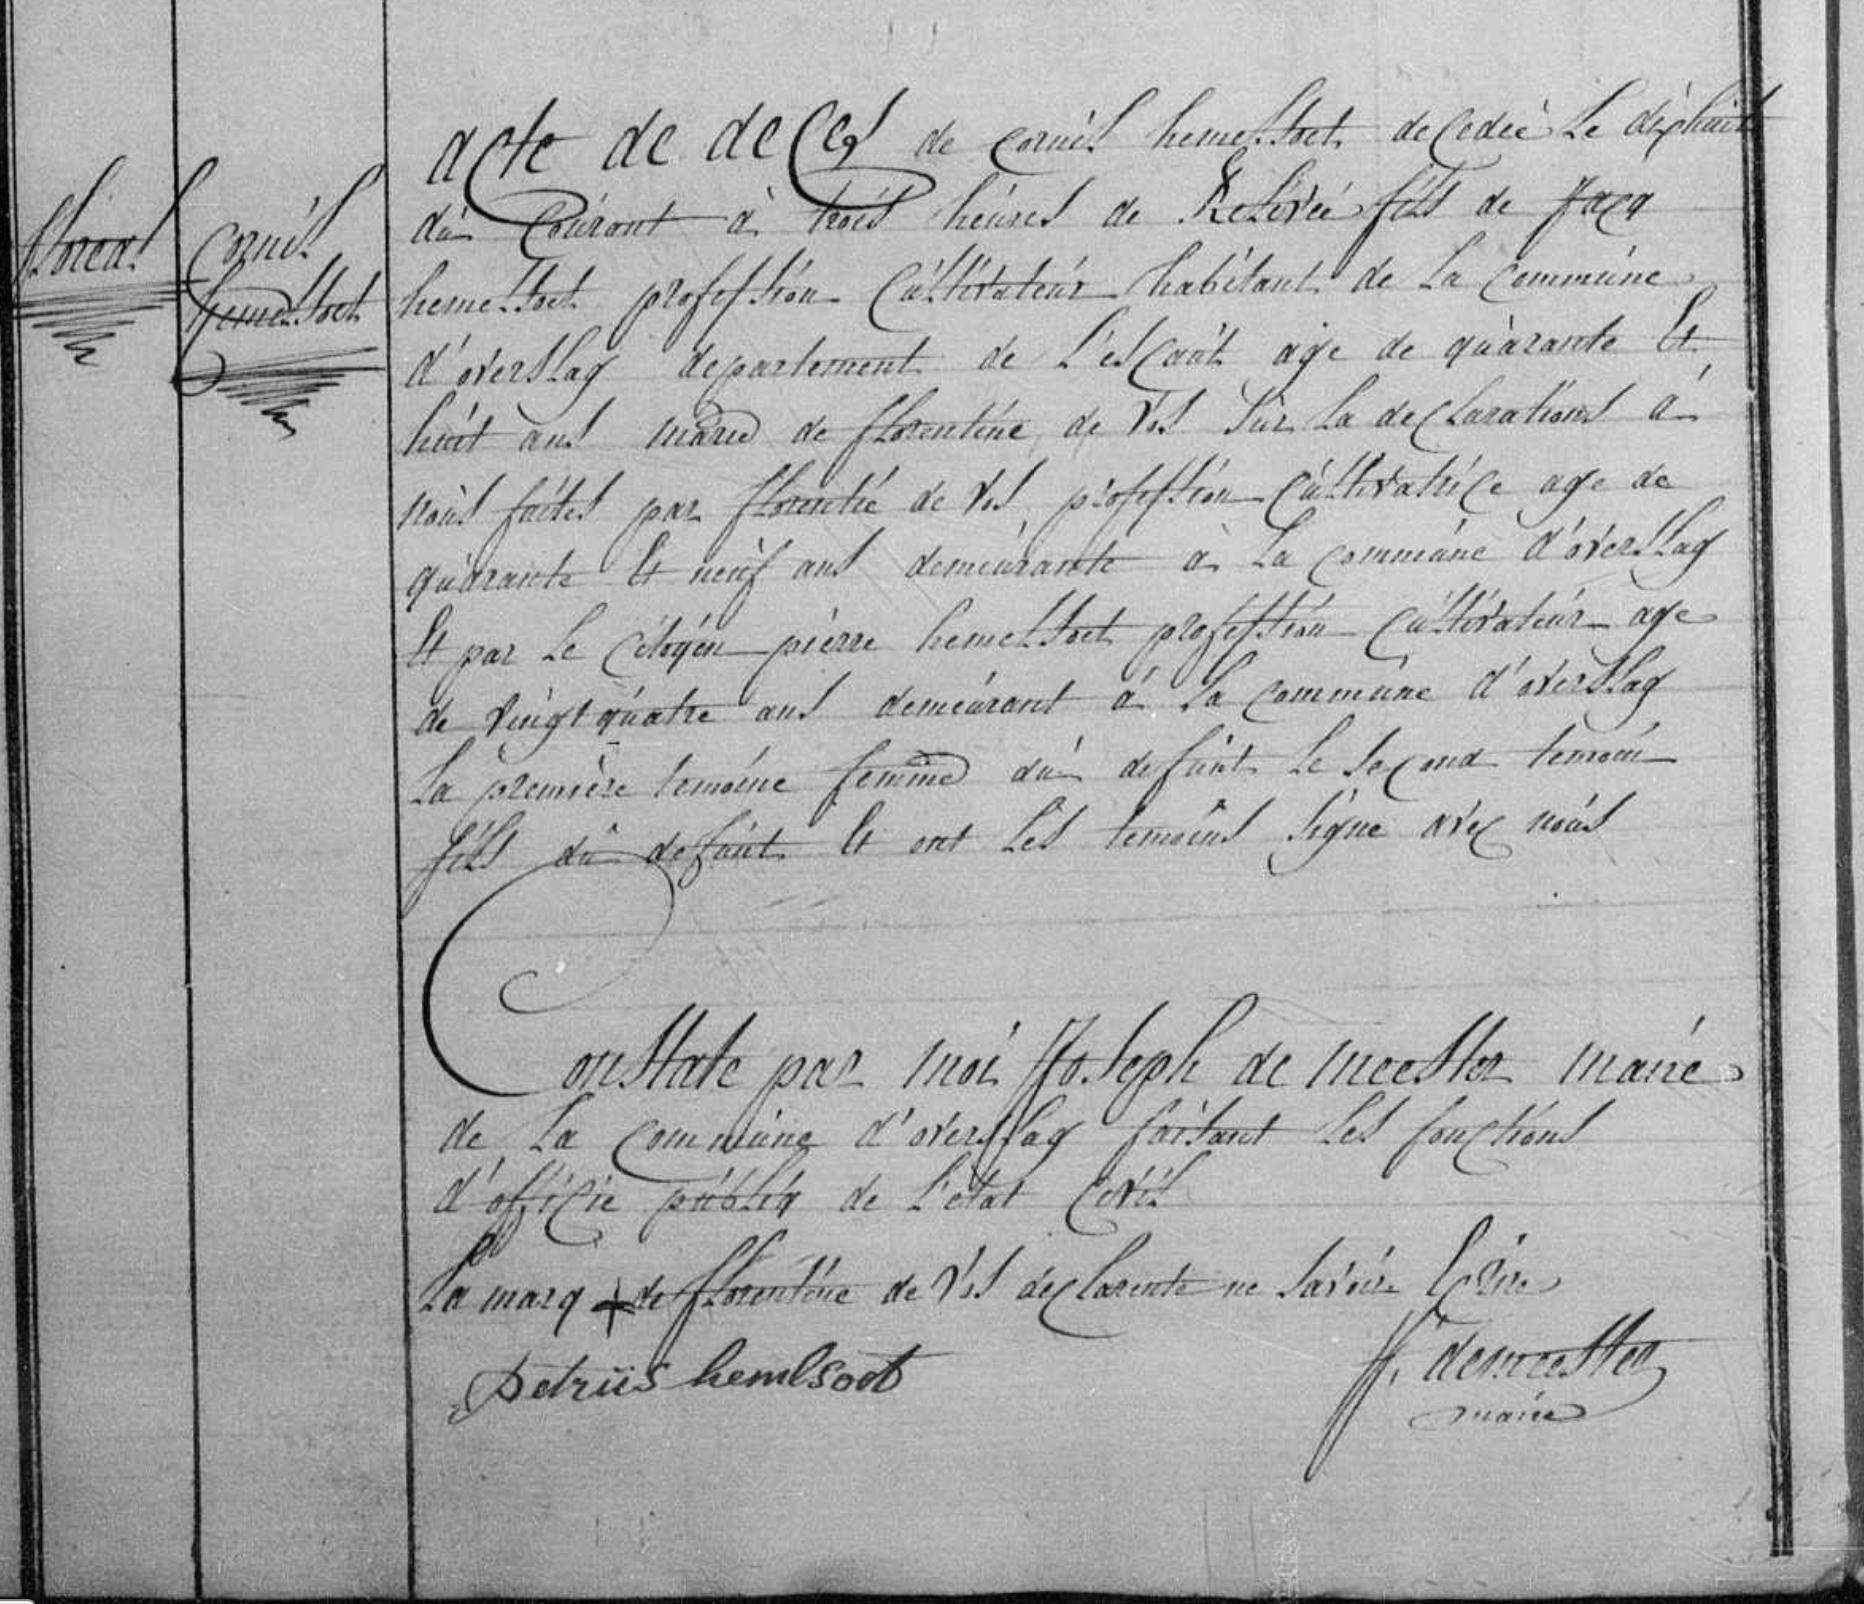 floreal
Cornil
hemelsoet
acte de deces de cornil hemelsoet decedeé Le dixhuit
du Courant à trois heures de Relivée fils de Jacq
hemelsoet profession Cultivateur habitant de La Commune
d'overslag departement de L'escaut age de quarante Et
huit ans marié de florentine de Vos sur La declarations à
nous faites par florentie de Vos profession Cultivatrice age de
quarante Et neuf ans demeurante à La commune d'overslag
Et par Le Citoyen pierre hemelsoet profession Cultivateur age
de vingt quatre ans demeurant à La commune d'overslag
La première temoine femme du defunt Le second temoin
fils du defunt Et ont Les temoins signe avec nous
Constate par moi Joseph de meester maire
de La commune d'overslag faisant Les fonctions
d'officie publiq de L'état Civil
La marq + de florentine de Vos declarente ne savoir Ecrire
petrus hemelsoet
J. demeester
maire